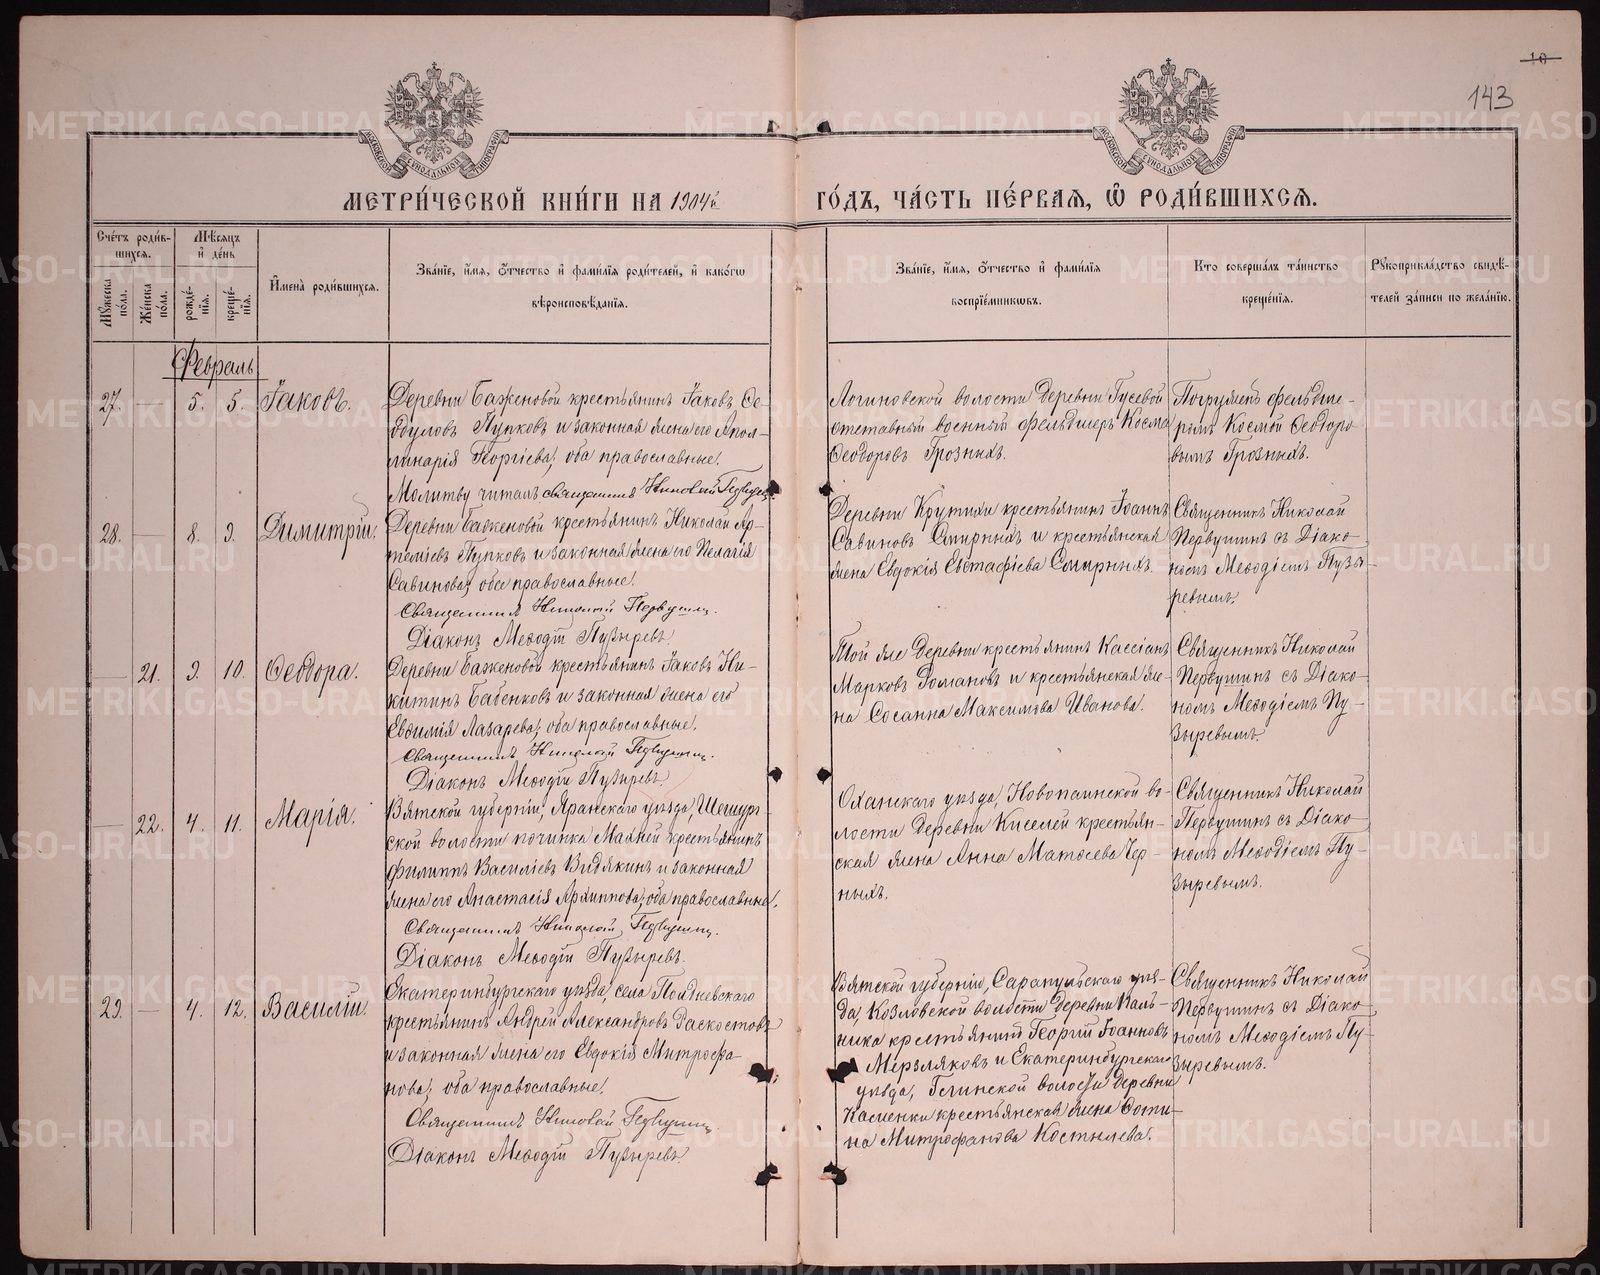 10
143
МЕТРИ́ЧЕСКОЙ КНИ́ГИ НА 1904й ГО́ДЪ, ЧА́СТЬ ПЕ́РВАѦ, Ѡ҆ РОДИ́ВШИХСѦ.
МОСКОВСКОЙ СѴНОДАЛЬНОЙ ТИПОГРАФІИ
МОСКОВСКОЙ СѴНОДАЛЬНОЙ ТИПОГРАФІИ
Сче́тъ роди́в-
шихсѧ.
Мꙋ́жеска по́ла.
Же́нска по́ла.
Мѣ́сѧцъ и҆ де́нь
рожде́нїѧ.
креще́нїѧ.
И҆мена̀ роди́вшихсѧ.
Зва́нїе, и҆́мѧ, ѻ҆́тчество и҆ фами́лїѧ роди́телей, и҆ како́гѡ
вѣроисповѣ́данїѧ.
Зва́нїе, и҆́мѧ, ѻ҆́тчество и҆ фами́лїѧ
воспрїе́мникѡвъ.
Кто̀ соверша́лъ та́инство
креще́нїѧ.
Рꙋкоприкла́дство свидѣ́-
телей за́писи по жела́нїю.
Февраль
27.
—
5.
5.
Іаковъ.
Деревни Баженовой крестьянинъ Іаковъ Ѳе-
одуловъ Пупковъ и законная жена его Апол-
линарія Георгіева; оба православные.
Молитву читалъ священникъ Николай Первушин
Логиновской волости деревни Гусевой
отставный военный фельдшеръ Косма
Ѳеодоровъ Грозныхъ.
Погруженъ фельдше-
ромъ Космой Ѳеодоро-
вымъ Грозныхъ.
28.
—
8.
9.
Димитрій.
Деревни Баженовой крестьянинъ Николай Ар-
теміевъ Пупковъ и законная жена его Пелагія
Савинова; обе православные.
Священникъ Николай Первушин.
Діаконъ Меѳодій Пузыревъ.
Деревни Крутихи крестьянинъ Іоаннъ
Савиновъ Смирныхъ и крестьянская
жена Евдокія Евстафіева Смирныхъ.
Священникъ Николай
Первушинъ съ Діако-
номъ Меѳодіемъ Пузы-
ревымъ.
—
21.
9.
10.
Ѳеодора.
Деревни Баженовой крестьянинъ Іаковъ Ни-
китинъ Бабенковъ и законная жена его
Евѳимія Лазарева; оба православные.
Священникъ Николай Первушин.
Діаконъ Меѳодій Пузыревъ.
Той же деревни крестьянинъ Кассіанъ
Марковъ Романовъ и крестьянская же-
на Сосанна Максимова Иванова.
Священникъ Николай
Первушинъ съ Діако-
номъ Меѳодіемъ Пу-
зыревымъ.
—
22.
4.
11.
Марія.
Вятской губерніи, Яранскаго уѣзда, Шешург-
ской волости починка крестьянинъ
Филиппъ Василіевъ Видякинъ и законная
жена его Анастасія Архиппова; оба православные.
Священникъ Николай Первушин.
Діаконъ Меѳодій Пузыревъ.
Оханскаго уѣзда, Новопаинской во-
лости деревни Киселей крестьян-
ская жена Анна Матѳеева Чер-
ныхъ.
Священникъ Николай
Первушинъ съ Діако-
номъ Меѳодіемъ Пу-
зыревымъ.
29.
—
4.
12.
Василій.
Екатеринбургскаго уѣзда, села Полдневскаго
крестьянинъ Андрей Александровъ Раскостовъ
и законная жена его Евдокія Митрофа-
нова; оба православные.
Священникъ Николай Первушин.
Діаконъ Меѳодій Пузыревъ.
Вятской губерніи, Сарапульскаго уѣз-
да, Козловской волости деревни Каль-
ника крестьянинъ Георгій Іоанновъ
Мерзляковъ и Екатеринбургскаго
уѣзда, волости деревни
Касленки крестьянская жена Фоти-
на Митрофанова Костылева.
Священникъ Николай
Первушинъ съ Діако-
номъ Меѳодіемъ Пу-
зыревымъ.
METRIKI.GASO-URAL.RU